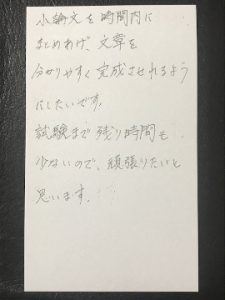 小論文を時間内に
まとめあげ、文章を
分かりやすく完成させれるよう
にしたいです。
試験まで残り時間も
少ないので、頑張りたいと
思います。